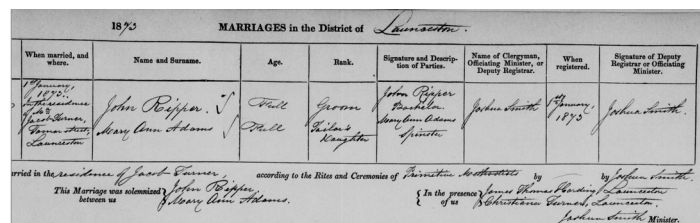 1873 MARRIAGES in the District of Launceston.
When married, and where. Name and Surname. Age. Rank. Signature and Description of Parties. Name of Clergyman, Officiating Minister, or Deputy Registrar. When registered. Signature of Deputy Registrar or Officiating Minister.
1st January, 1873. In the residence of Mr Jacob Turner, Tamar Street, Launceston
John Ripper. Full Groom John Ripper Bachelor Joshua Smith 1st January, 1873 Joshua Smith.
Mary Ann Adams Full Tailor's Daughter Mary Ann Adams Spinster
arried in the residence of Jacob Turner, according to the Rites and Ceremonies of Primitive Methodists by by Joshua Smith.
This Marriage was solemnized between us John Ripper Mary Ann Adams. In the presence of us James Thomas Harding Launceston Christianna Turner, Launceston.
Joshua Smith Minister.